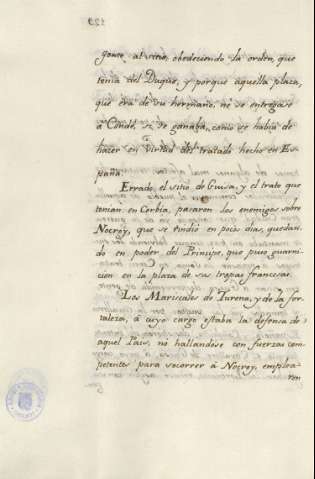 gonse al sitio, obedeciendo la orden, que
tenia del Duque, y porque aquella plaza,
que era de su hermano, no se entregase
á Condé, si se ganaba, como se habia de
hacer en virtud del tratado hecho en Es
paña.
Errado el sitio de Guisa, y el trato que
tenian en Corbia, pasaron los enemigos sobre
Rocroy, que se rindió en pocos dias, quedan
do en poder del Principe, que puso guarni
cion en la plaza de sus tropas francesas.
Los Mariscales de Turena, y de la for
taleza, á cuyo cargo estaba la defensa de
aquel Pais, no hallandose con fuerzas com
petentes para socorrer á Rocroy, emplea
ron